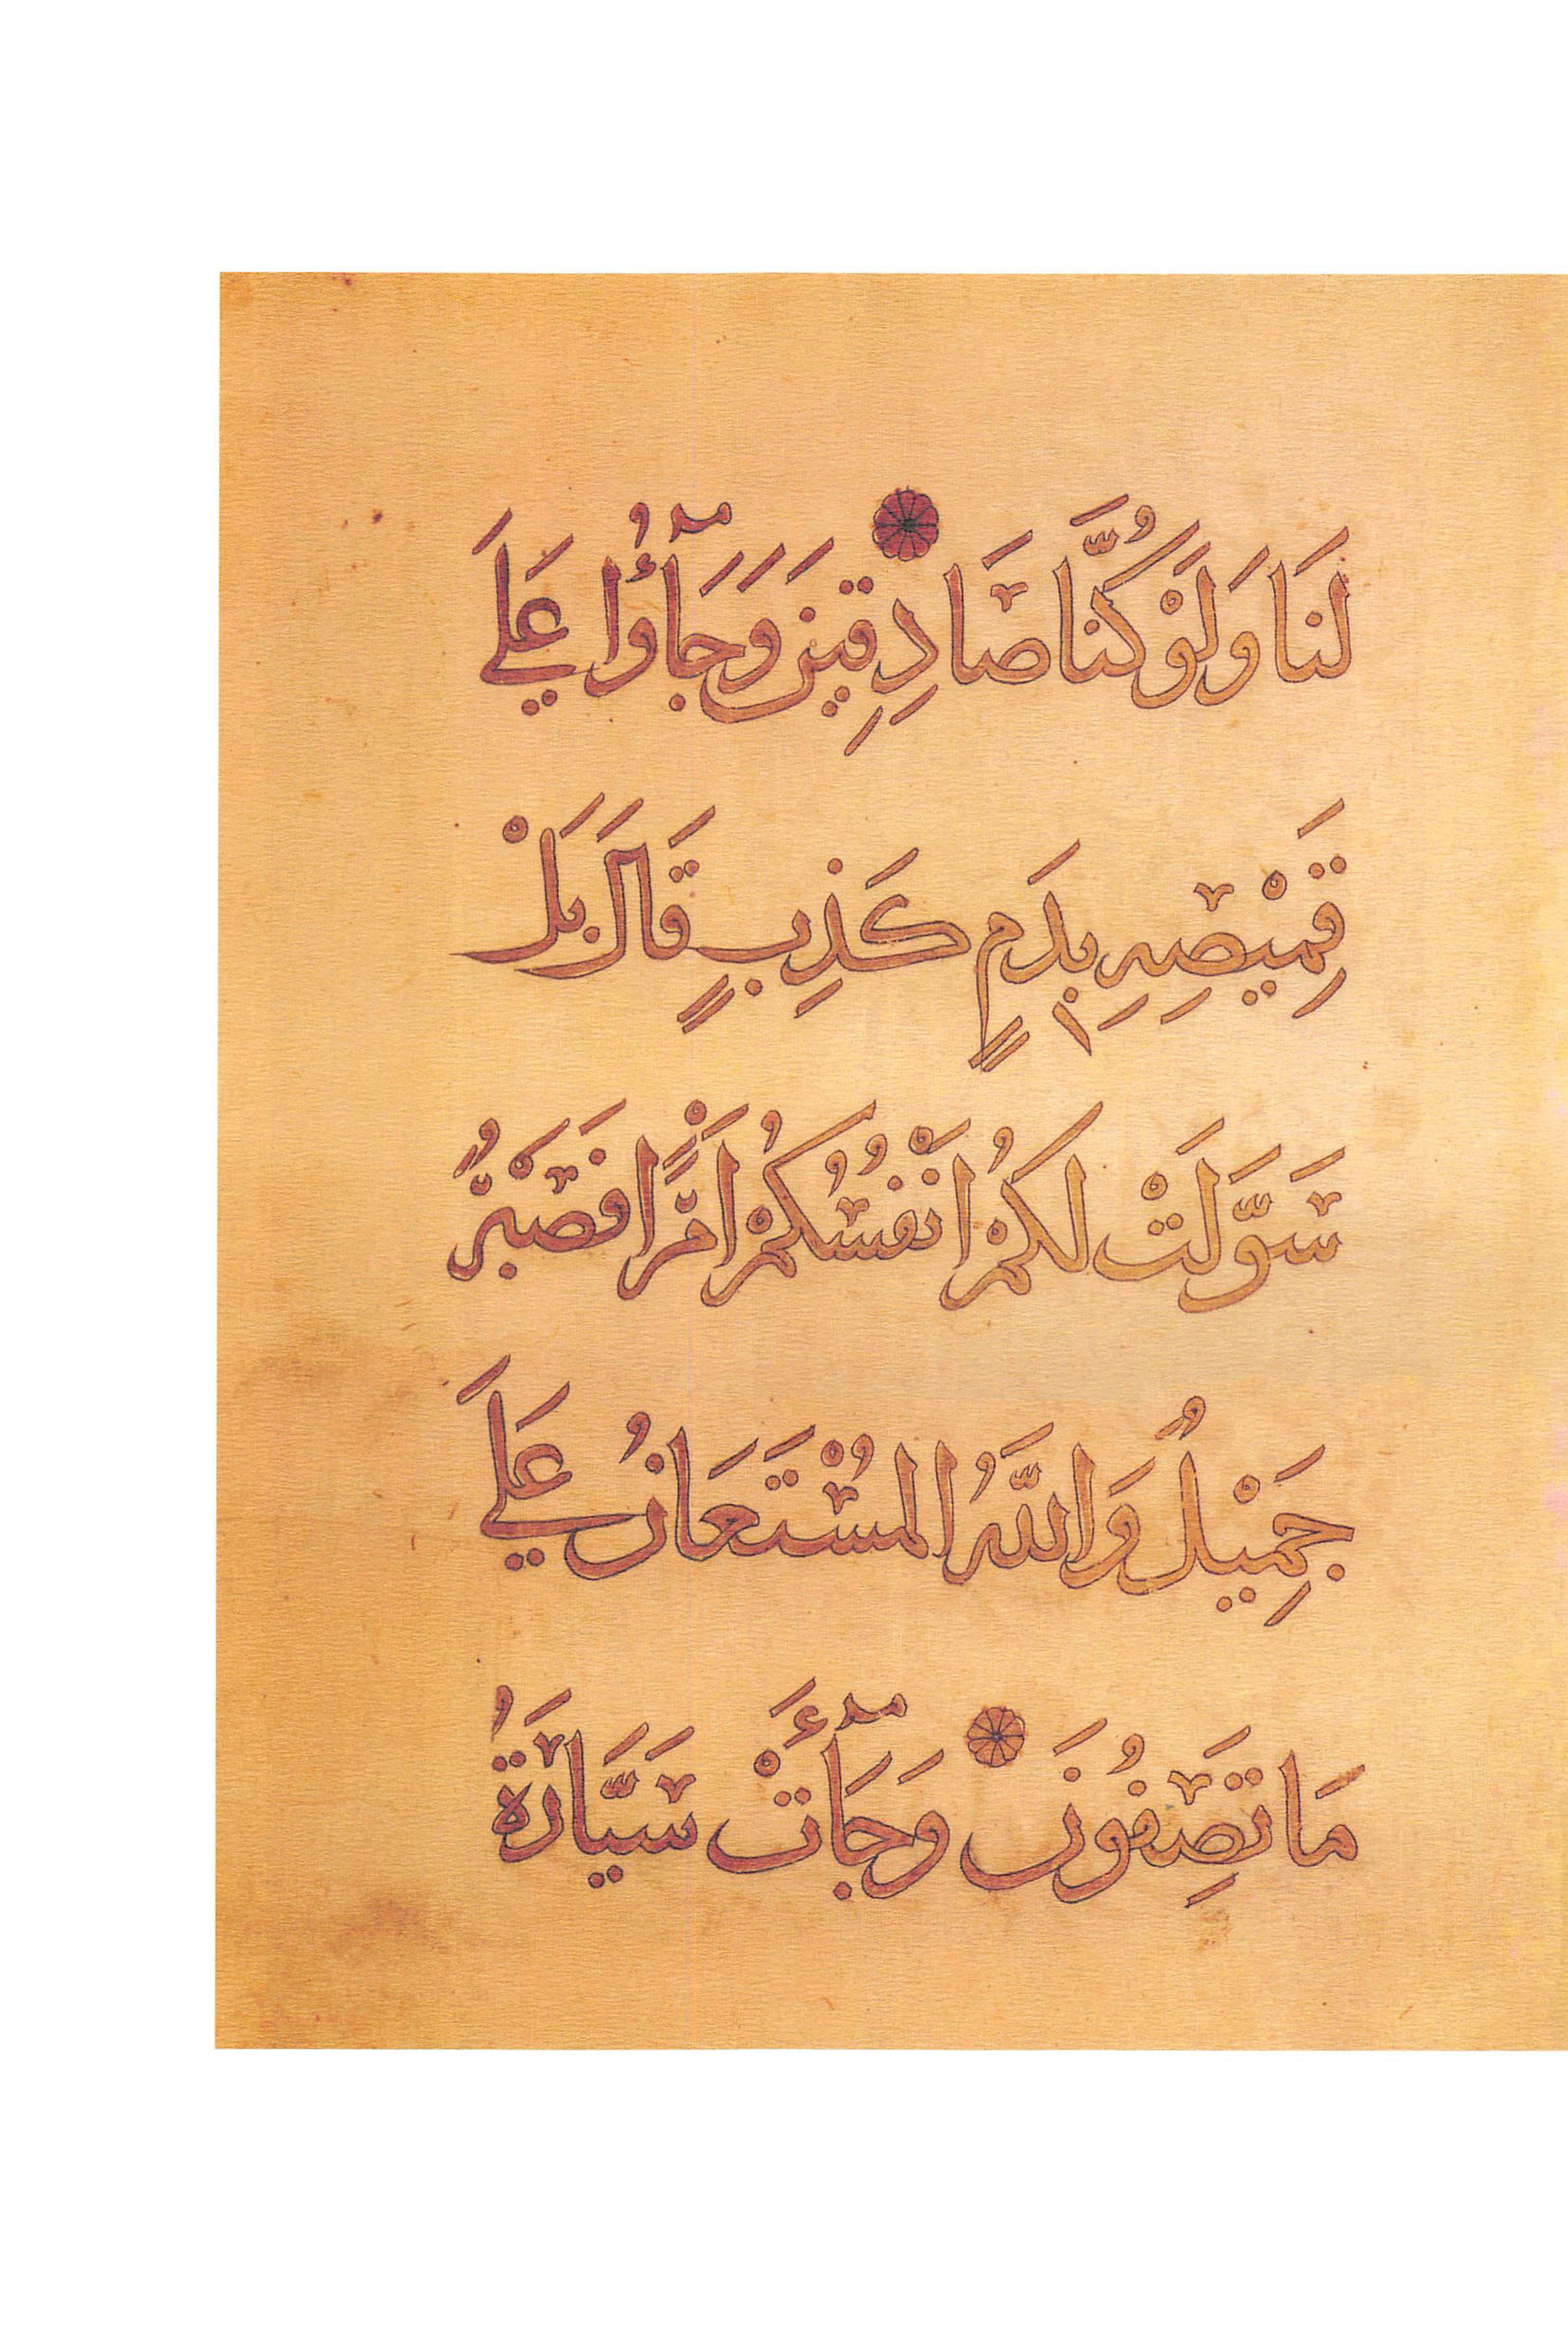 لَنَا وَلَوْ كُنَّا صَادِقِينَ وَجَآؤُا عَلَي
قَمِيْصِهِ بِدَمٍ كَذِبٍ قَالَ بَلْ
سَوَّلَتْ لَكُمْ اَنْفُسُكُمْ اَمْرًا فَصَبْرٌ
جَمِيْلٌ وَاللَّهُ الْمُسْتَعَانُ عَلَي
مَا تَصِفُونَ وَجَآءَتْ سَيَّارَةٌ